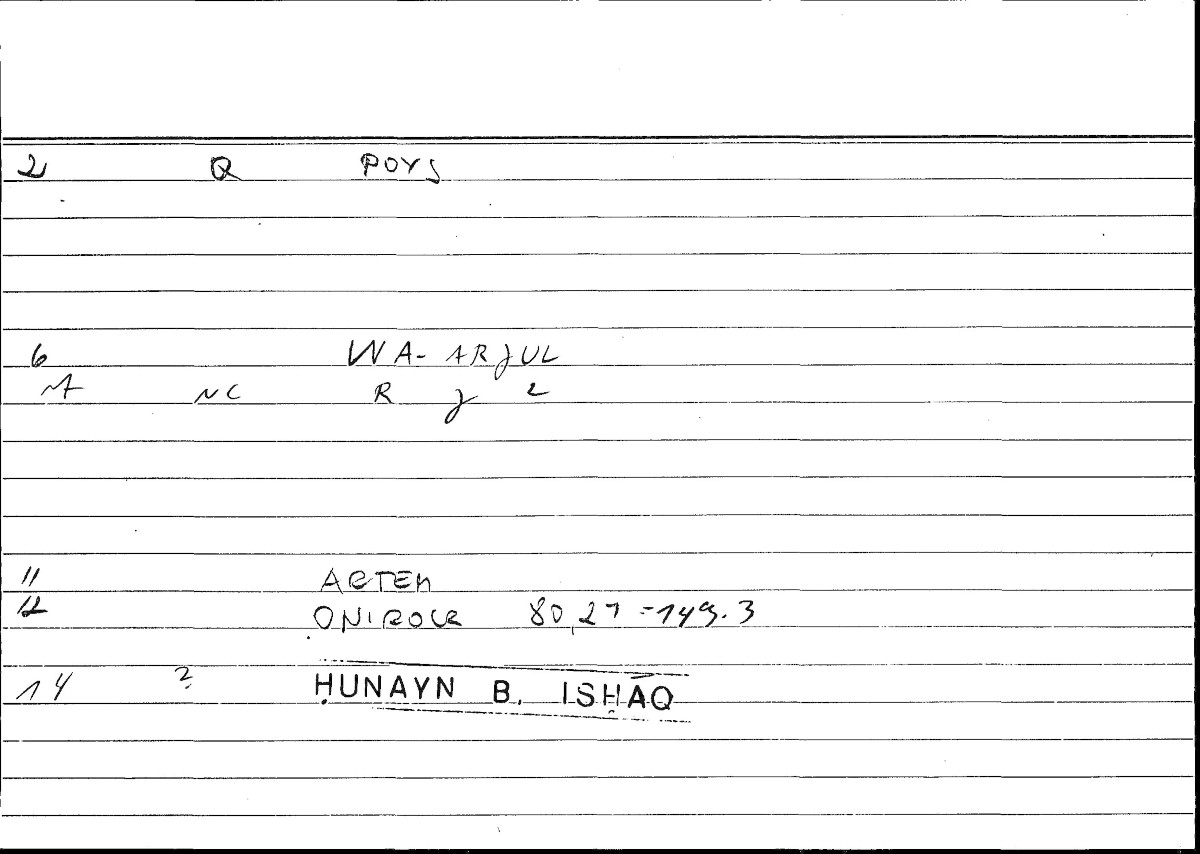 2 Q POYS
6 WA- ARJUL
NC R J L
11 ARTEM
12 ONIROCR 80,27 = 149.3
14 ? ḤUNAYN B. ISḤĀQ